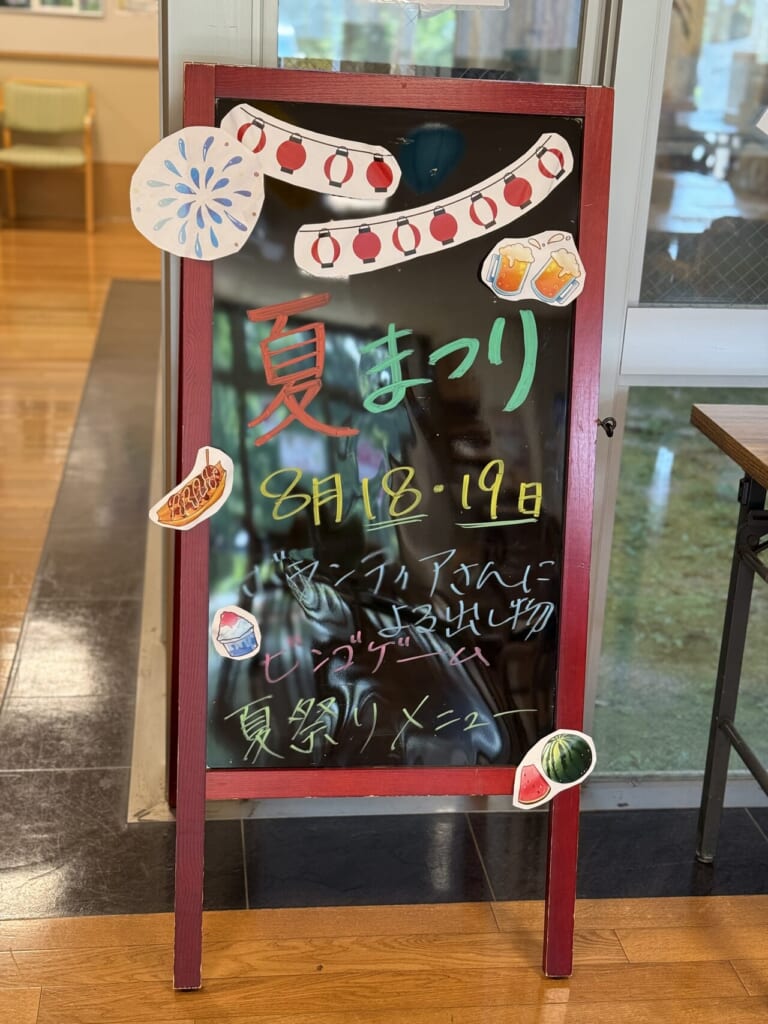 夏まつり
8月18・19日
ボランティアさんに
よる出し物
ビンゴゲーム
夏祭りメニュー